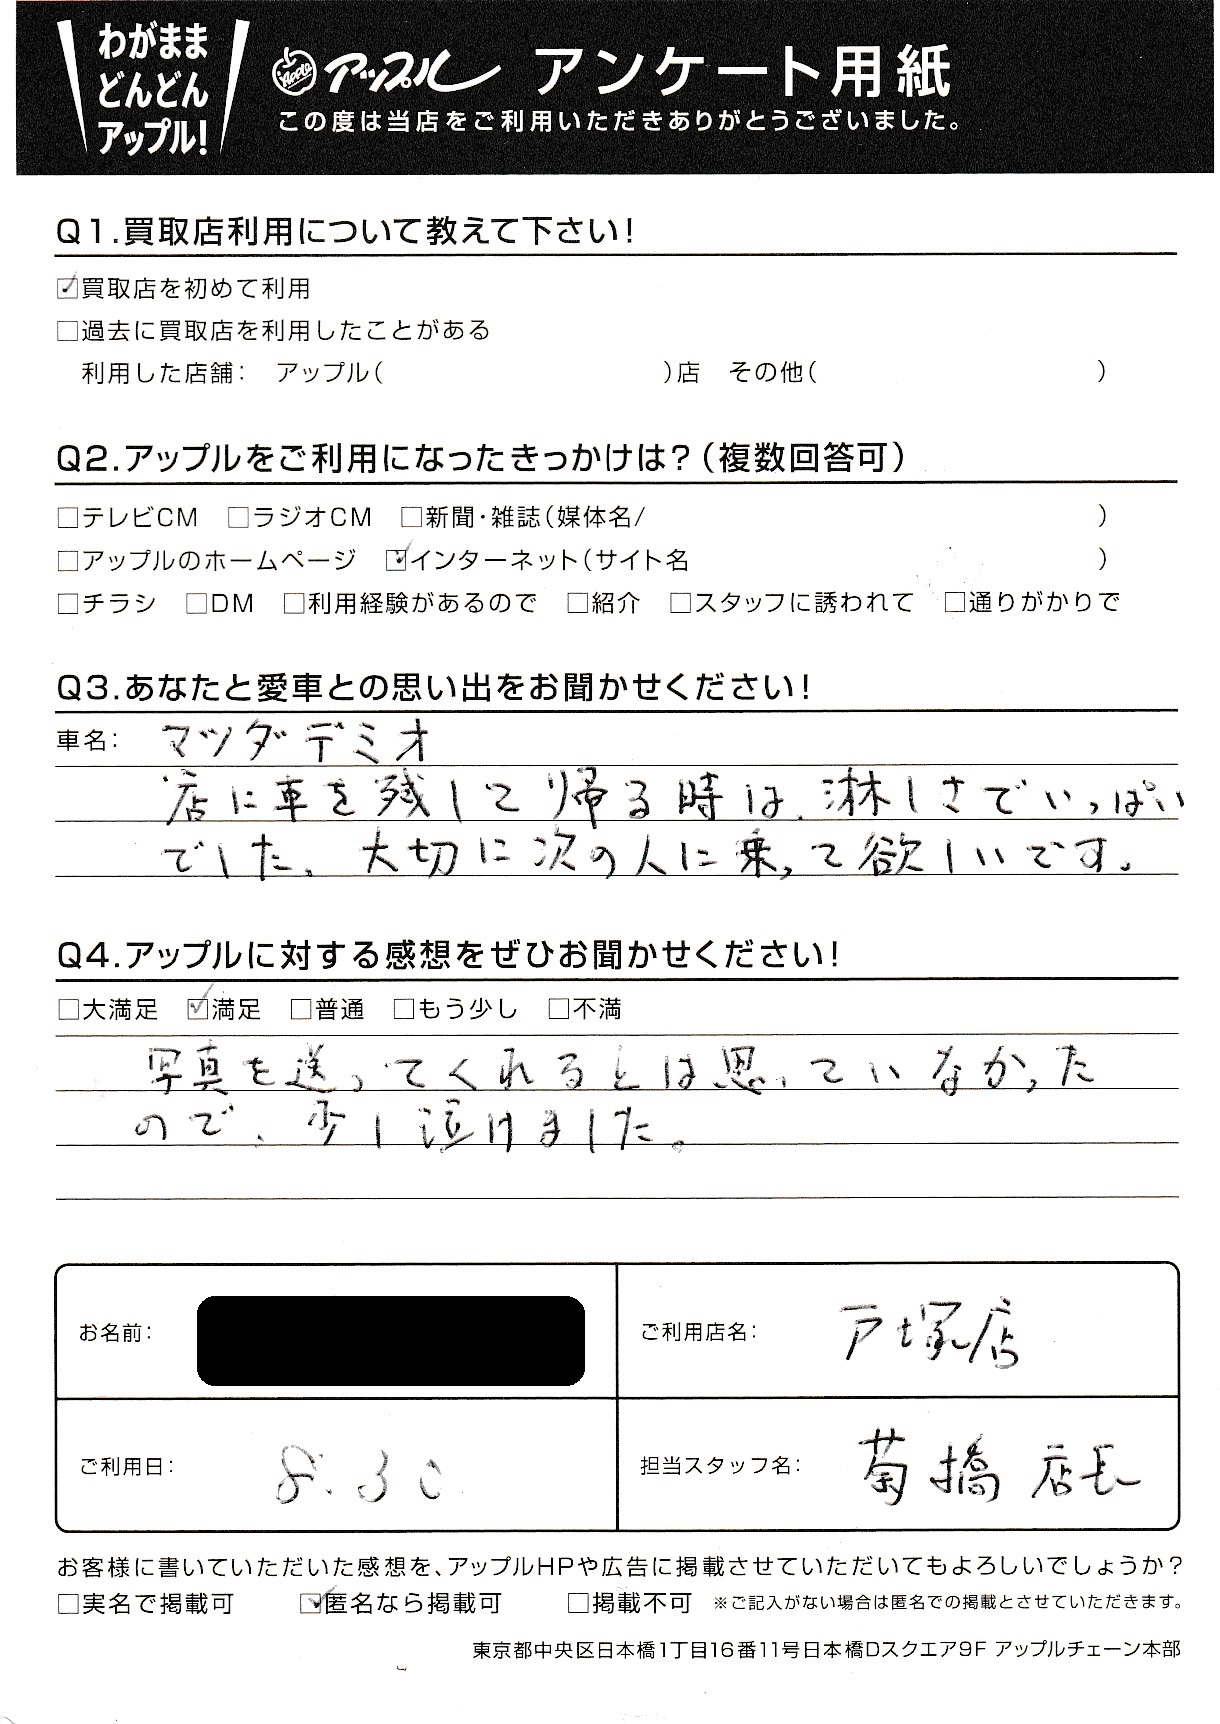 わがまま
どんどん
アップル!
Apple アップル アンケート用紙
この度は当店をご利用いただきありがとうございました。
Q1.買取店利用について教えて下さい!
☑買取店を初めて利用
□過去に買取店を利用したことがある
利用した店舗: アップル( )店 その他( )
Q2.アップルをご利用になったきっかけは?(複数回答可)
□テレビCM □ラジオCM □新聞・雑誌(媒体名/ )
□アップルのホームページ ☑インターネット(サイト名 )
□チラシ □DM □利用経験があるので □紹介 □スタッフに誘われて □通りがかりで
Q3.あなたと愛車との思い出をお聞かせください!
車名: マツダデミオ
店に車を残して帰る時は、淋しさでいっぱい
でした。大切に次の人に乗って欲しいです。
Q4.アップルに対する感想をぜひお聞かせください!
□大満足 ☑満足 □普通 □もう少し □不満
写真を送ってくれるとは思っていなかった
ので、少し泣けました。
お名前:
ご利用店名: 戸塚店
ご利用日: 8.30
担当スタッフ名: 菊橋 店長
お客様に書いていただいた感想を、アップルHPや広告に掲載させていただいてもよろしいでしょうか?
□実名で掲載可 ☑匿名なら掲載可 □掲載不可 ※ご記入がない場合は匿名での掲載とさせていただきます。
東京都中央区日本橋1丁目16番11号日本橋Dスクエア9F アップルチェーン本部